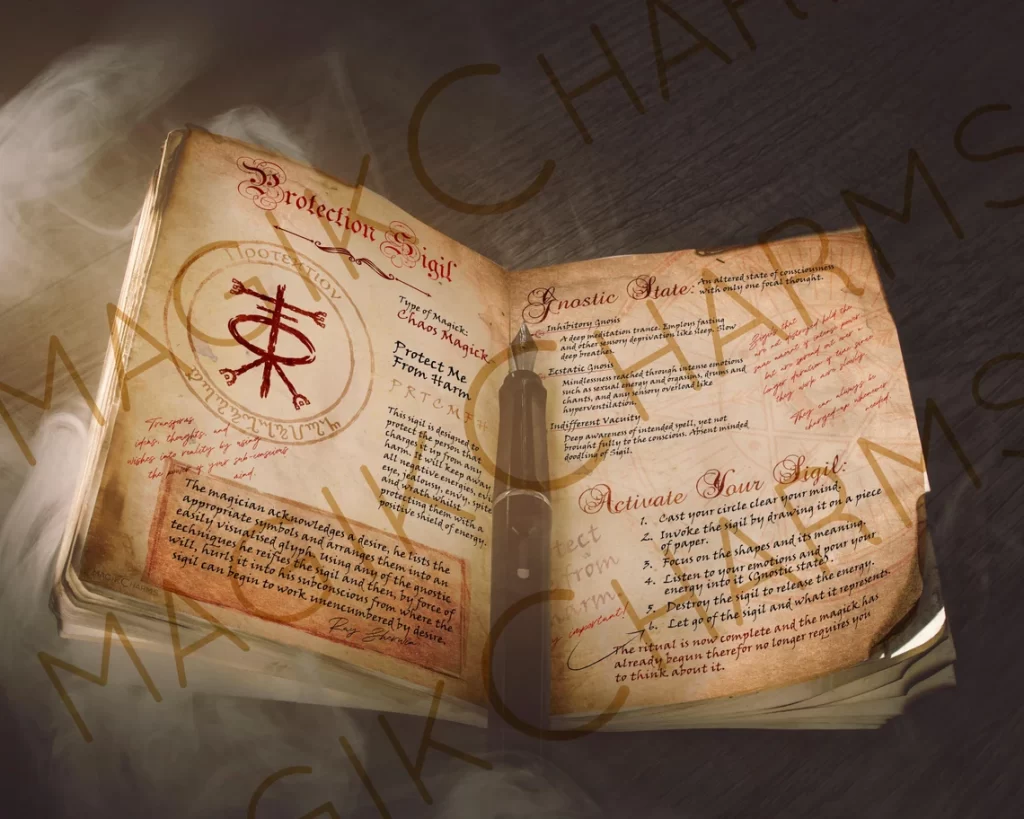 Protection Sigil
PROTEKTION
Type of Magick:
Chaos Magick
Protect Me
From Harm
P R T C M F H
This sigil is designed to
protect the person that
charges it up from any
harm. It will keep away
all negative energies, evil
eye, jealousy, envy, spite
and wrath whilst
protecting them with a
positive shield of energy.
Transfers
ideas, thoughts and
wishes into reality by using
the power of your sub-consious
mind.
The magician acknowledges a desire, he lists the
appropriate symbols and arranges them into an
easily visualised glyph. Using any of the gnostic
techniques he reifies the sigil and then, by force of
will, hurls it into his subconscious from where the
sigil can begin to work unencumbered by desire.
Ray Sherwin
Gnostic State: An altered state of consciousness
with only one focal thought.
Inhibitory Gnosis
A deep meditation trance. Employs fasting
and other sensory deprivation like sleep. Slow
deep breathes.
Ecstatic Gnosis
Mindlessness reached through intense emotions
such as sexual energy and orgasm, drums and
chants, and any sensory overload like
hyperventilation.
Indifferent Vacuity
Deep awareness of intended spell, yet not
brought fully to the conscious. Absent minded
doodling of Sigil.
They are always in
Activate Your Sigil:
1. Cast your circle clear your mind.
2. Invoke the sigil by drawing it on a piece
of paper.
3. Focus on the shapes and its meaning.
4. Listen to your emotions and pour your
energy into it (Gnostic state).
5. Destroy the sigil to release the energy.
6. Let go of the sigil and what it represents.
important!
The ritual is now complete and the magick has
already begun therefor no longer requires you
to think about it.
tect
from
arm
MAGIK CHARMS
MAGIK CHARMS
MAGIK CHARMS